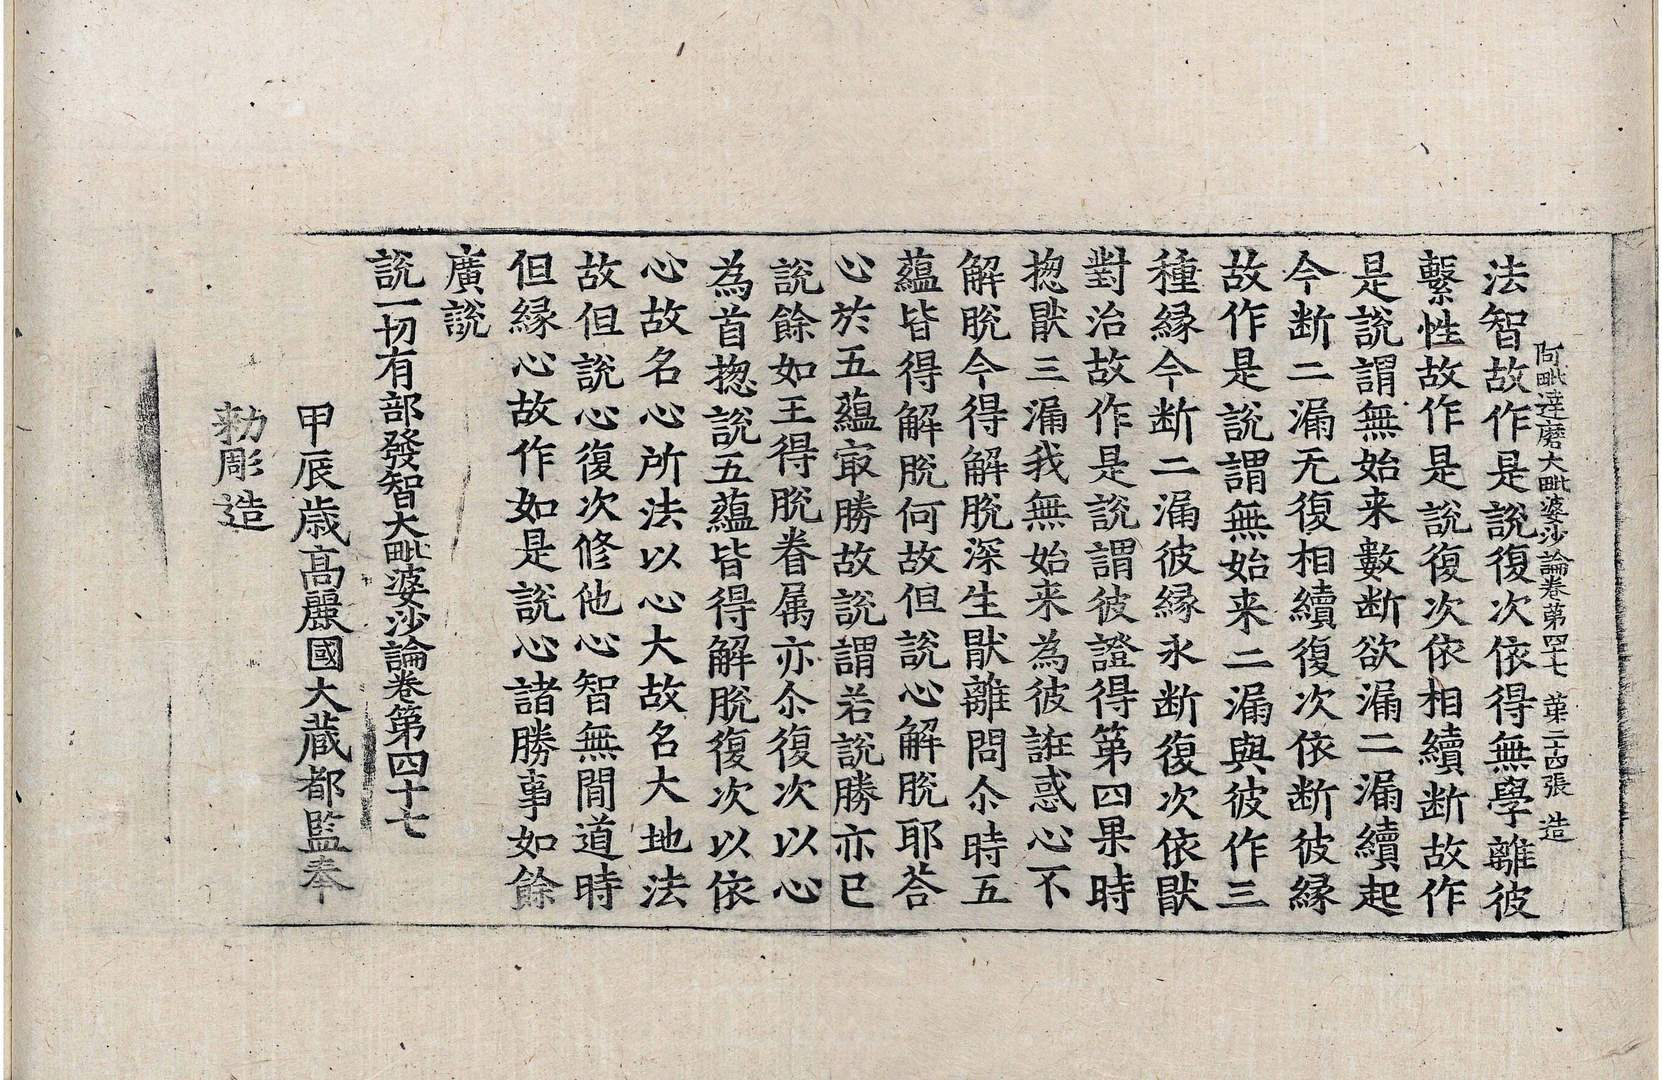 阿毗達磨大毗婆沙論卷第四十七 苐二十四張 造
法智故作是說復次依得無學離彼
繫性故作是說復次依相續断故作
是說謂無始来數断欲漏二漏續起
今断二漏无復相續復次依断彼縁
故作是說謂無始来二漏與彼作三
種縁今断二漏彼縁永断復次依猒
對治故作是說謂彼證得第四果時
揔猒三漏我無始来為彼誑惑心不
解脫今得解脫深生猒離問尒時五
蘊皆得解脫何故但說心解脫耶荅
心於五蘊㝡勝故說謂若說勝亦已
說餘如王得脫眷属亦尒復次以心
為首揔說五蘊皆得解脫復次以依
心故名心所法以心大故名大地法
故但說心復次修他心智無間道時
但縁心故作如是說心諸勝事如餘
廣說
說一切有部發智大毗婆沙論卷第四十七
甲辰歳髙麗國大蔵都監奉
勑彫造